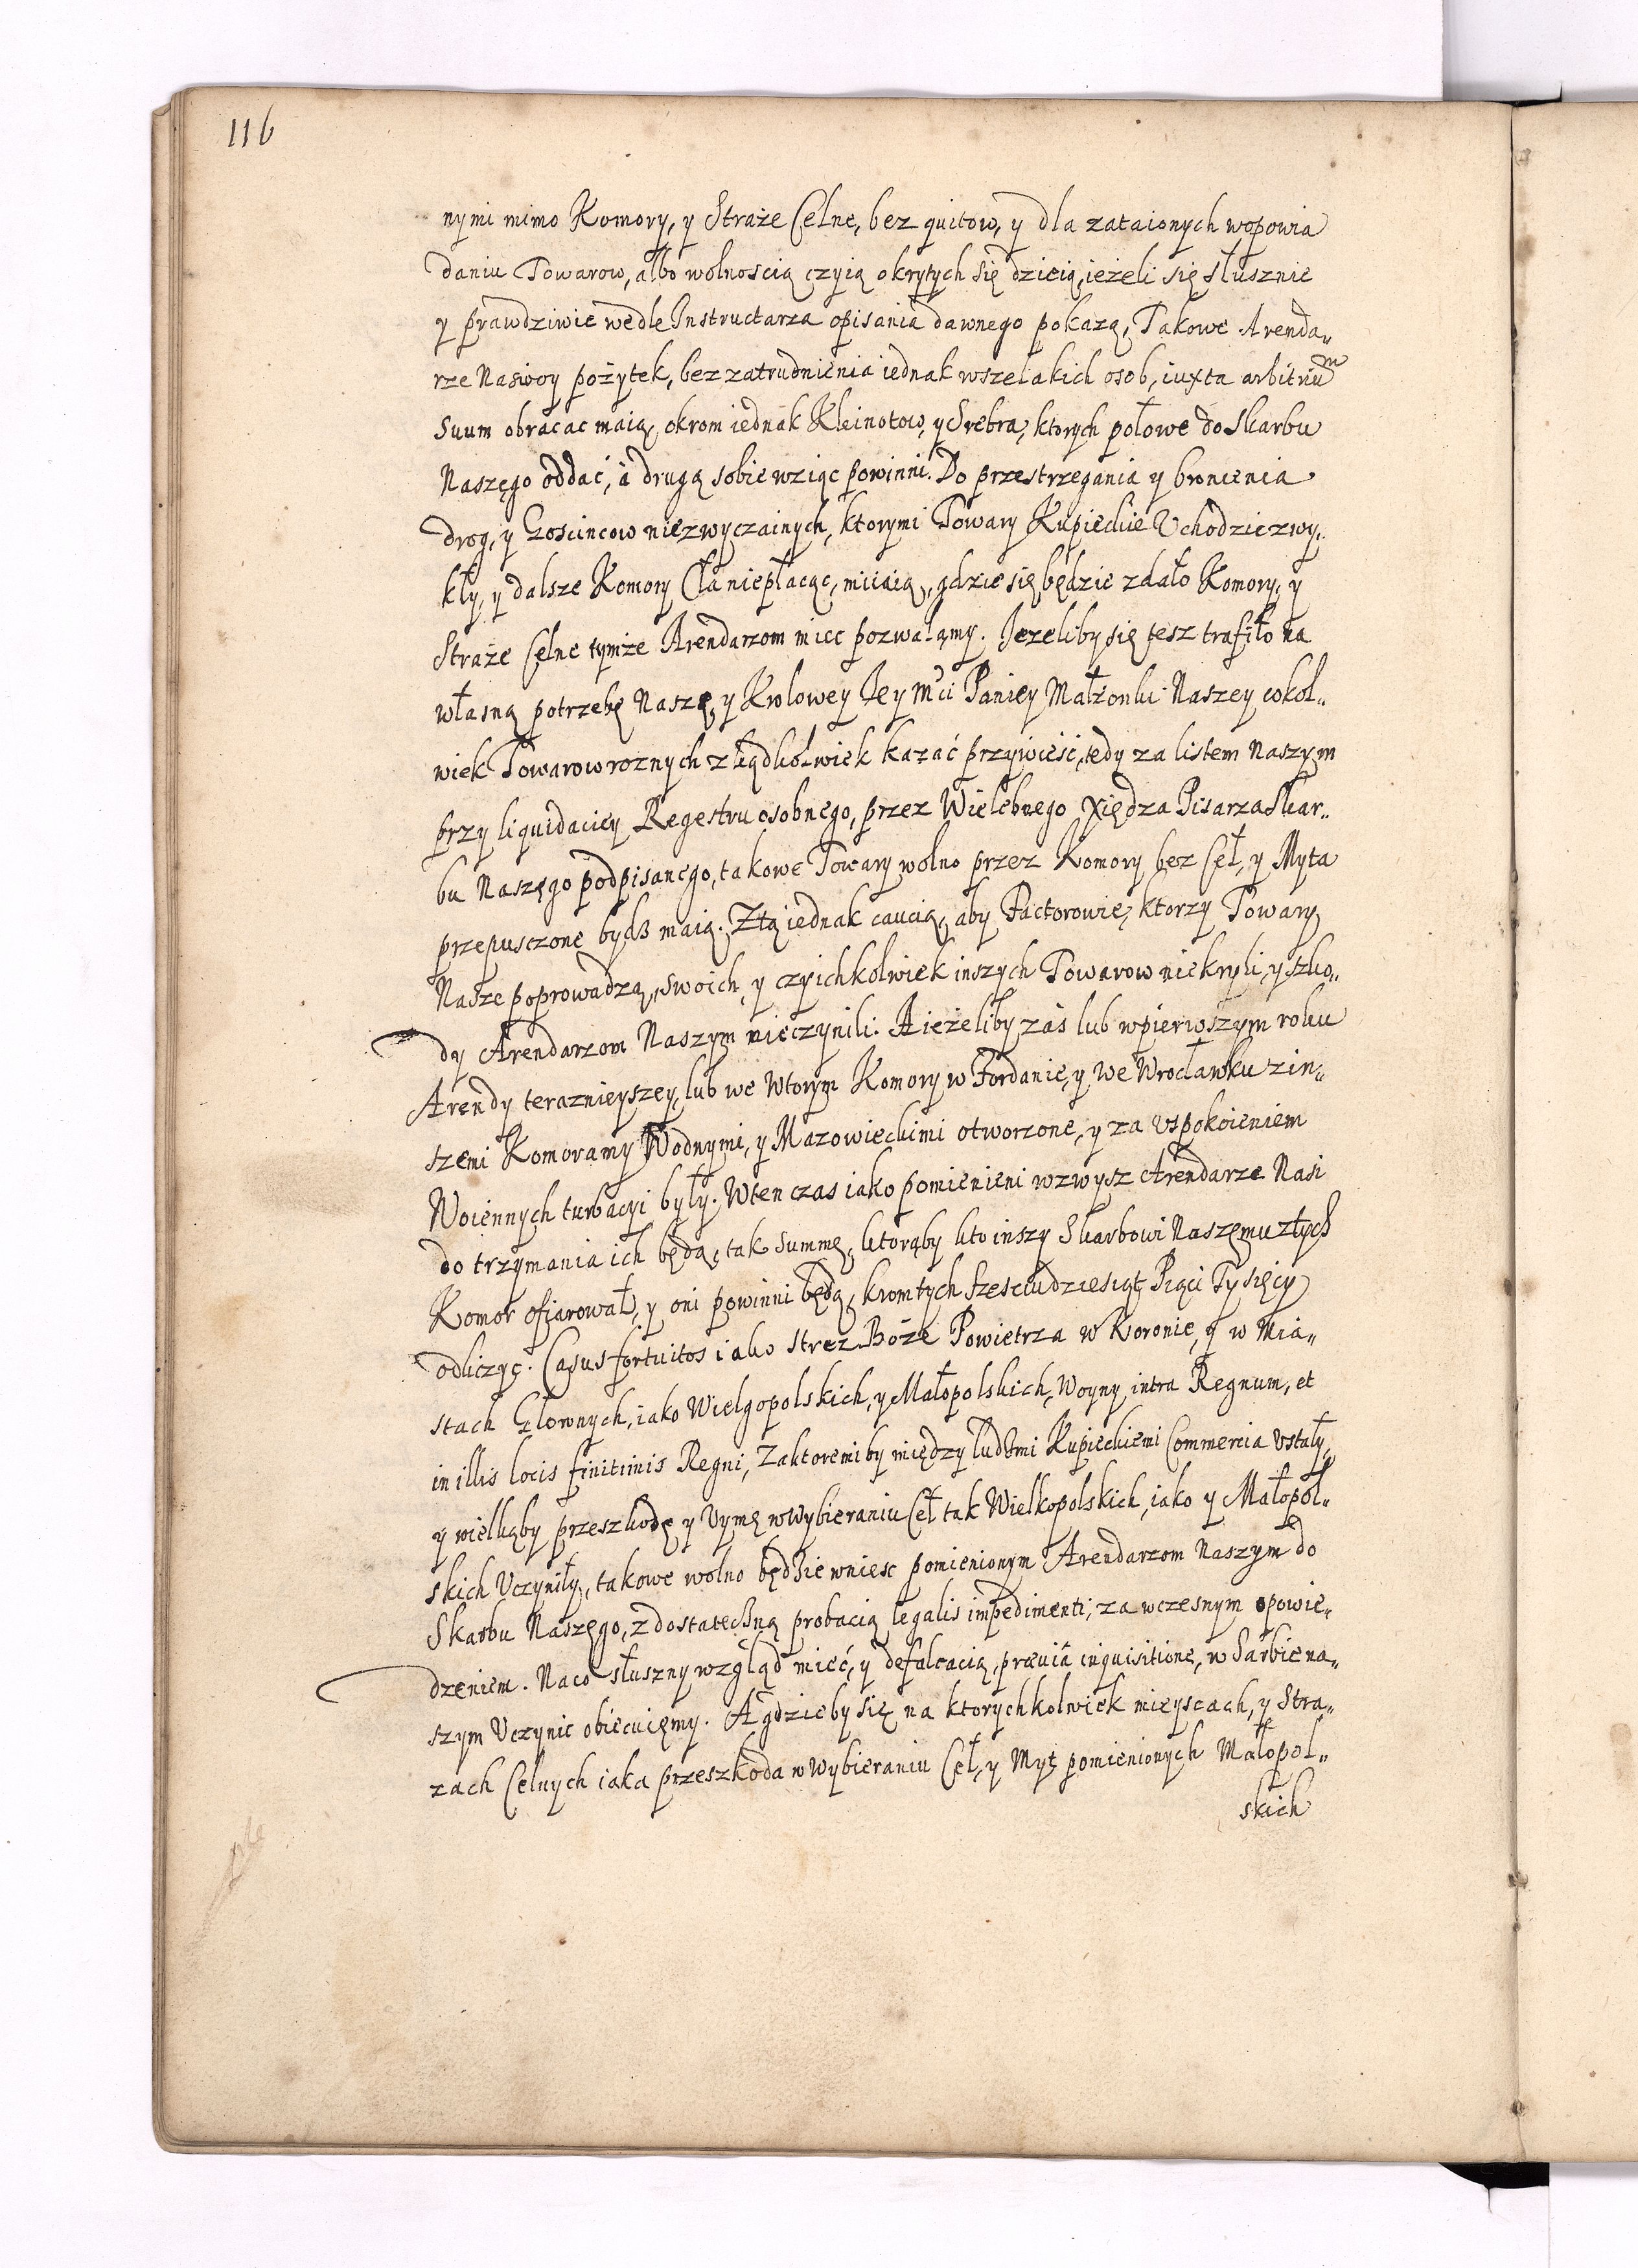 116
nymi mimo Komory, y Straże Celne, bez quitow, y dla zataionych wopowia
daniu Towarow, albo wolnoscią czyią okrytych się dzieią, ieżeli się słusznie
y prawdziwie wedle Instructarza opisania dawnego pokażą, Takowe Arenda„
rze Naswoy pożytek, bez zatrudnienia iednak wszelakich osob, iuxta arbitriũm
suum obracac maią, okrom iednak Kleinotow, y Srebra, ktorych połowe do Skarbu
Naszego oddać, à drugą sobie wziąc powinni. Do przestrzegania y bronienia
drog, y Goscincow niezwyczainych, ktorymi Towary Kupieckie Vchodzic zwy„
kły, y dalsze Komory Cła niepłacąc, miiaią, gdzie się będzie zdało Komory, y
Straże Celne tymże Arendarzom miec pozwalamy. Jezeliby się tesz trafiło na
własną potrzebę Naszę, y Krolowey Jey Mci Paniey Małżonki Naszey cokol„
wiek Towarow roznych zkądkolwiek kazać przywieść, tedy za listem Naszym
przy liquidaciey Regestru osobnego, przez Wielebnego Xiędza Pisarza Skar„
bu Naszego podpisanego, takowe Towary wolno przez Komory bez Ceł, y Myta
przepusczone bydź maią. Ztą iednak caucią, aby Factorowie, ktorzy Towary
Nasze poprowadzą, swoich, y czyichkolwiek inszych Towarow niekryli, y szko„
dy Arendarzom Naszym nieczynili. A ieżeliby zàs lub wpierwszym roku
Arendy teraznieyszey, lub we wtorym Komory w Fordanie, y we Wrocławku zin„
szemi Komoramy Wodnymi, y Mazowieckimi otworzone, y za vspokoieniem
Woiennych turbacyi były. Wten czas iako pomienieni wzwysz Arendarze Nasi
do trzymania ich będą, tak summę, ktorąby kto inszy Skarbowi Naszemu ztych
Komor ofiarował, y oni powinni będą, krom tych sześciudziesiąt Piąci Tysięcy
odliczyc. Casus fortuitos iako strez Boże Powietrza w Koronie, y w Mia„
stach Głownych, iako Wielgopolskich, y Małopolskich, Woyny intra Regnum, et
in illis locis finitimis Regni, Zaktoremi by między ludźmi Kupieckiemi Commercia vstały,
y wielkąby przeszkodę y Vymę wwybieraniu Ceł tak Wielkopolskich, iako y Małopol„
skich Vczyniły, takowe wolno będzie wniesc pomienionym Arendarzom Naszym do
Skarbu Naszego, z dostateczną probacią legalis impedimenti, za wczesnym opowie„
dzeniem. Naco słuszny wzgląd mieć, y defalcacią, præuiâ inquisitione, w Sarbie na„
szym Vczynic obiecuięmy. A gdzieby się na ktorychkolwiek mieyscach, y Stra„
zach Celnych iaka przeszkoda w wybieraniu Ceł, y Myt pomienionych Małopol„
skich